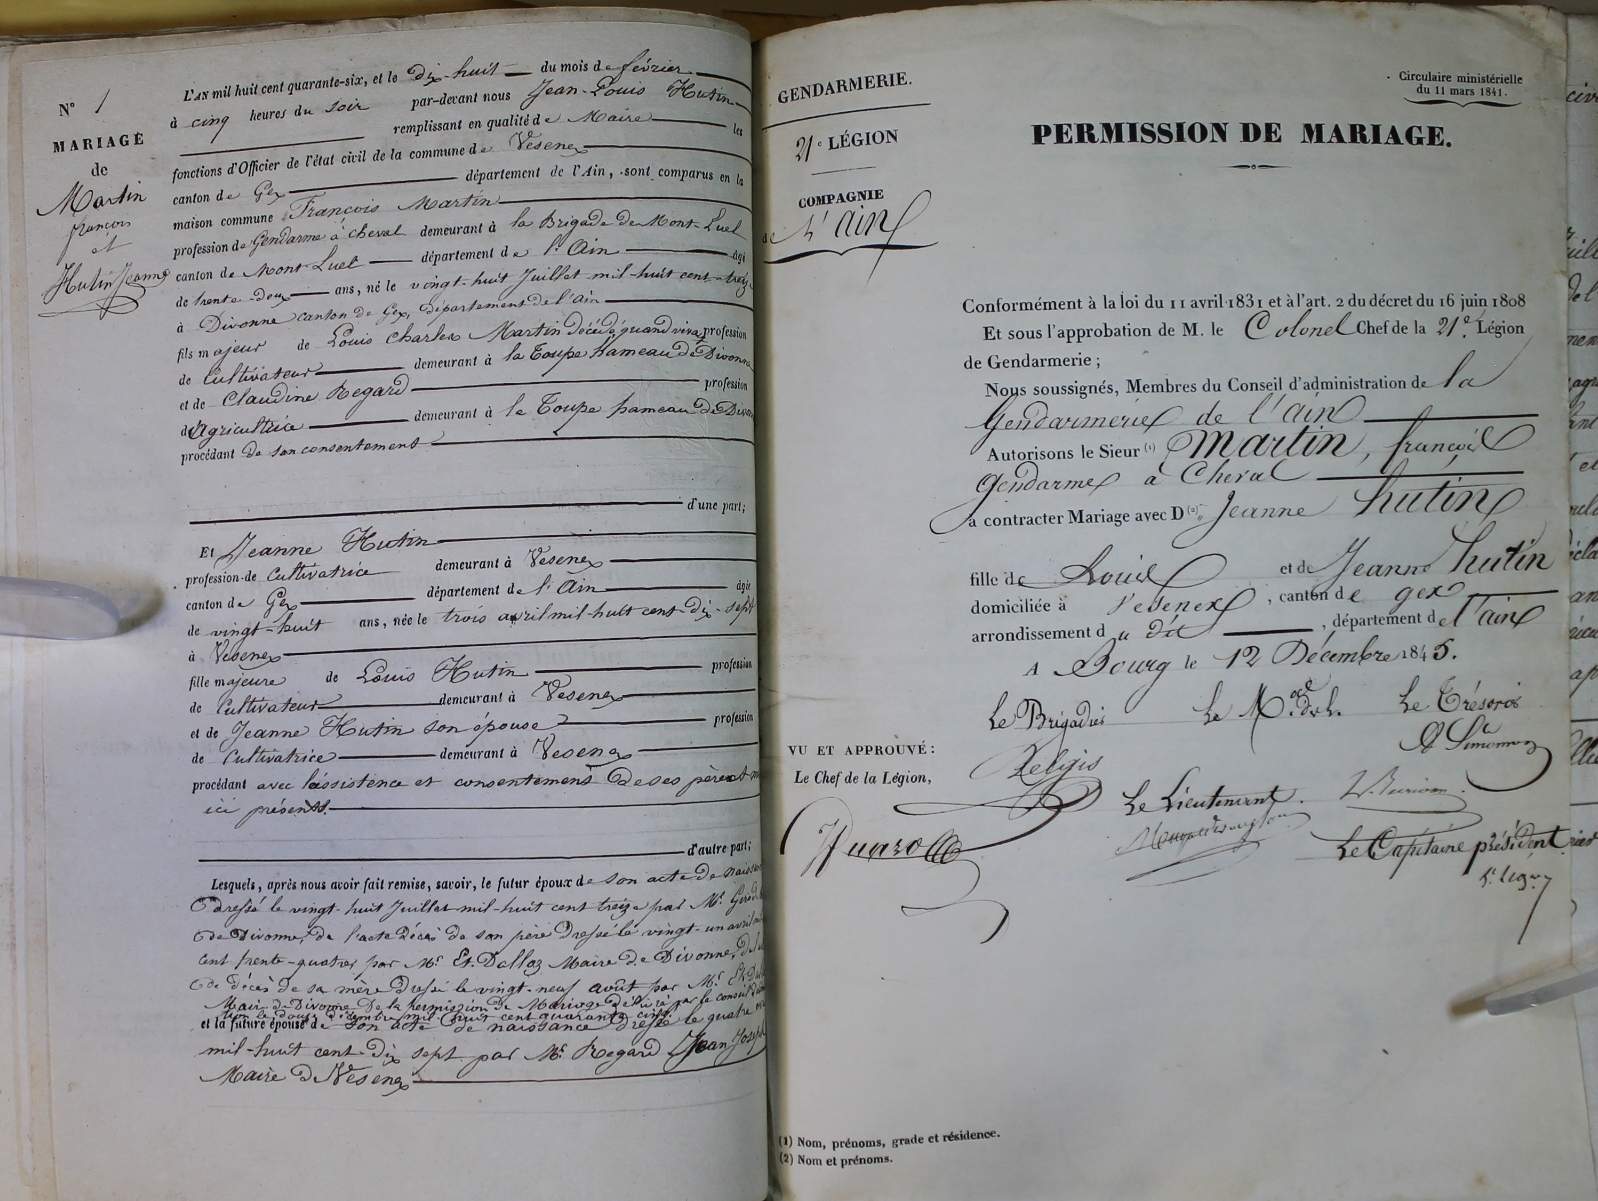 N° 1
MARIAGE
de
Martin
françois
et
Hutin Jeanne
L'AN mil huit cent quarante-six, et le dix-huit du mois de février
à cinq heures du soir par-devant nous Jean-Louis Hutin
remplissant en qualité de Maire les
fonctions d'Officier de l'état civil de la commune de Vesenex
canton de Gex département de l'Ain, sont comparus en la
maison commune François Martin
profession de Gendarme à cheval demeurant à la Brigade de Mont-Luel
canton de Mont-Luel département de l'Ain âgé
de trente-deux ans, né le vingt-huit Juillet mil-huit cent-treize
à Divonne canton de Gex, Département de l'ain
fils majeur de Louis Charles Martin décédé quand vivait profession
de Cultivateur demeurant à la Toupe hameau de Divonne
et de Claudine Regard profession
d'Agricultrice demeurant à la Toupe hameau de Divon
procédant de son consentement
d'une part;
Et Jeanne Hutin
profession de Cultivatrice demeurant à Vesenex
canton de Gex département de l'Ain âgée
de vingt-huit ans, née le trois avril mil-huit cent-dix-sept
à Vesenex
fille majeure de Louis Hutin profession
de Cultivateur demeurant à Vesenex
et de Jeanne Hutin son épouse profession
de Cultivatrice demeurant à Vesenex
procédant avec l'assistence et consentement de ses père et m
ici présents.
d'autre part;
Lesquels, après nous avoir fait remise, savoir, le futur époux de son acte de naissan
dressé le vingt-huit Juillet mil-huit cent treize par Mr. Girod
de Divonne, de l'acte décès de son père Dressé le vingt-un avril mil
cent trente-quatre, par Mr Et. Dallaz Maire de Divonne, de l'a
de décès de sa mère dressé le vingt-neuf août par Mr Et. Dal
Maire de Divonne De la permission de Mariage Délivré par le conseil d'
tion le douze décembre mil-huit cent quarante cinq
et la future épouse de son acte de naissance dressé le quatre
mil-huit cent-dix sept par Mr. Regard Jean Joseph
Maire de Vesenex
GENDARMERIE.
21e LÉGION
COMPAGNIE
de L'ain
Circulaire ministérielle
du 11 mars 1841.
PERMISSION DE MARIAGE.
Conformément à la loi du 11 avril 1831 et à l'art. 2 du décret du 16 juin 1808
Et sous l'approbation de M. le Colonel Chef de la 21e. Légion
de Gendarmerie;
Nous soussignés, Membres du Conseil d'administration de la
Gendarmerie de l'ain
Autorisons le Sieur (1) Martin, françois
Gendarme à Cheval
a contracter Mariage avec D(2)e Jeanne hutin
fille de Louis et de Jeanne hutin
domiciliée à Vesenex, canton de gex
arrondissement du dit, département de l'ain
A Bourg le 12 Décembre 1845.
Le Brigadier Le M.al d.s L. Le Trésorier
VU ET APPROUVÉ:
Le Chef de la Légion,
Le Lieutenant
Le Capitaine président
(1) Nom, prénoms, grade et résidence.
(2) Nom et prénoms.